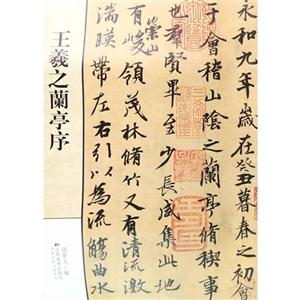 永和九年歲在癸丑暮春之初會
于會稽山陰之蘭亭脩稧事
也羣賢畢至少長咸集此地
有崇山峻領茂林脩竹又有清流激
湍暎帶左右引以為流觴曲水
王羲之蘭亭序